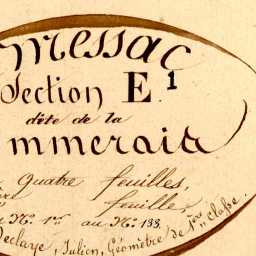 messac
Section E 1
dite de la
mmerais
quatre feuilles,
feuille,
N.° 1.er au N.° 133.
Declaye, Julien, Géomètre de 1.ère classe.